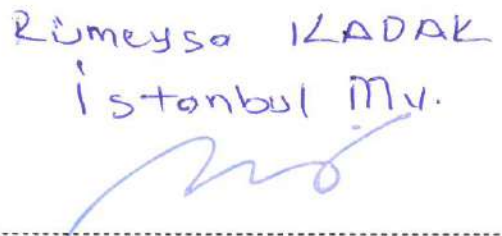 Rümeysa KADAK
İstanbul Mv.